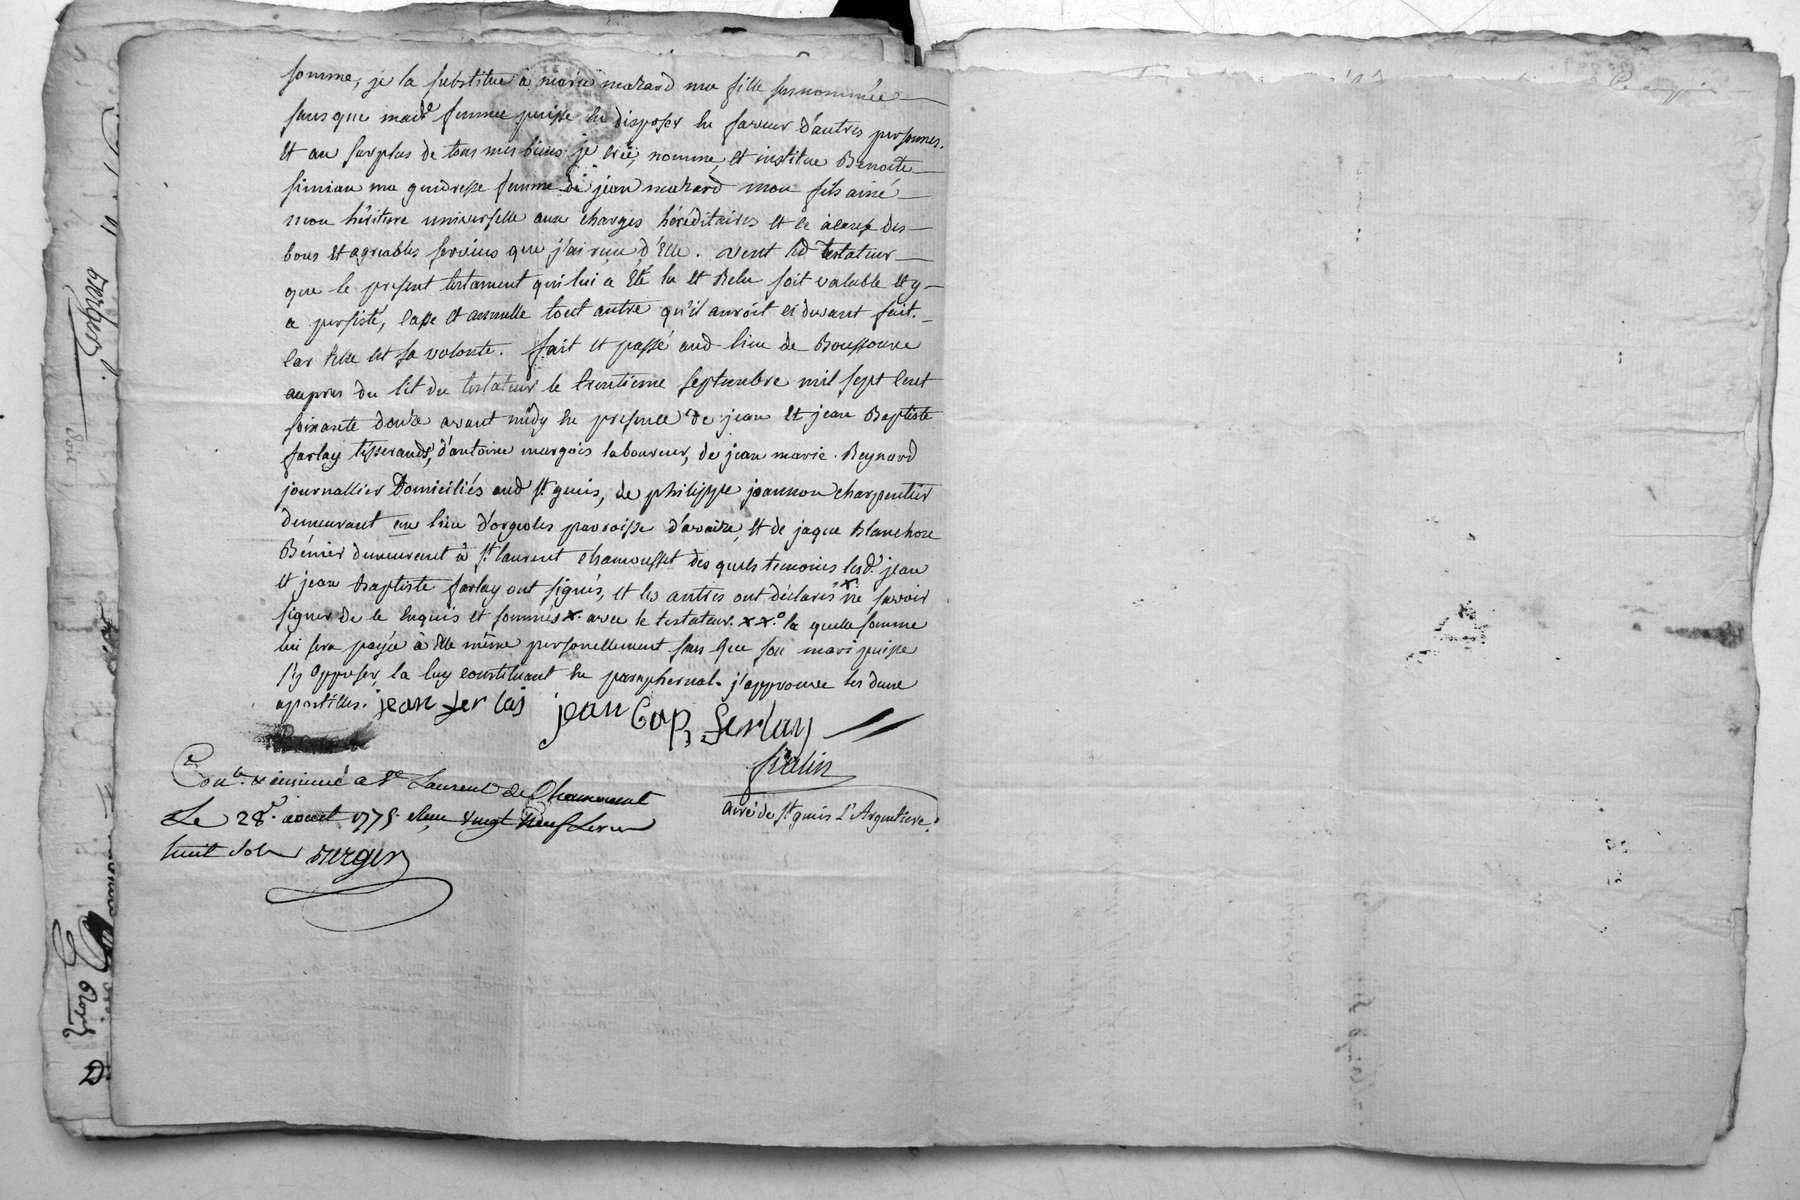 somme, je la substitue à marie mazard ma fille susnommée
sans que mad.e femme puisse en disposer en faveur d'autres personnes.
Et au surplus de tous mes biens je créé, nomme, et institue Benoite
simian ma gendresse femme de jean mazard mon fils ainé
mon héritiere universelle aux charges héréditaires et ce à cause des
bons et agreables services que j'ai reçu d'Elle. veut led testateur
que le present testament qui lui a été lu et Relu soit valable et y
a persisté, casse et annulle tout autre qu'il auroit ci devant fait.
car telle est sa volonté. fait et passé aud lieu de Boussoure
aupres du lit du testateur le trentieme septembre mil sept cent
soixante douze avant midy en presence de jean et jean Baptiste
farlay tisserands, d'antoine margois laboureur, de jean marie Reynard
journallier Domiciliés aud st. genis, de philippe joannon charpentier
demeurant au lieu d'orgeoles parroisse d'avaize, et de jaque Blanchore
Bénier demeurant à st. laurent chamousset des quels temoins lesd. jean
et jean Baptiste farlay ont signés, et les autres ont déclarés x. ne savoir
signer de ce Enquis et sommés x. avec le testateur. x x.° la quelle somme
lui sera payée à Elle même personellement sans que son mari puisse
s'y opposer, la luy constituant en paraphernal. j'approuve les deux
apostilles. jean ferlay jean Bap. ferlay
Con.lé & insinué a St Laurent de Chamousset
Le 28. aouet 1775. Reçu vingt Neuf Livres
curé de st. genis L'Argentiere.
huit sols Verger